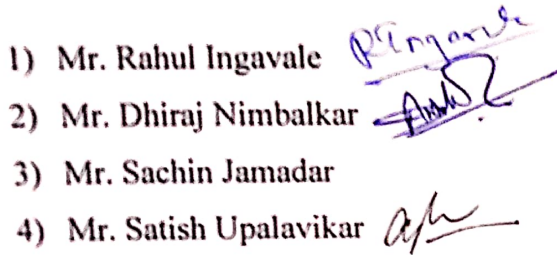 1) Mr. Rahul Ingavale
2) Mr. Dhiraj Nimbalkar
3) Mr. Sachin Jamadar
4) Mr. Satish Upalavikar